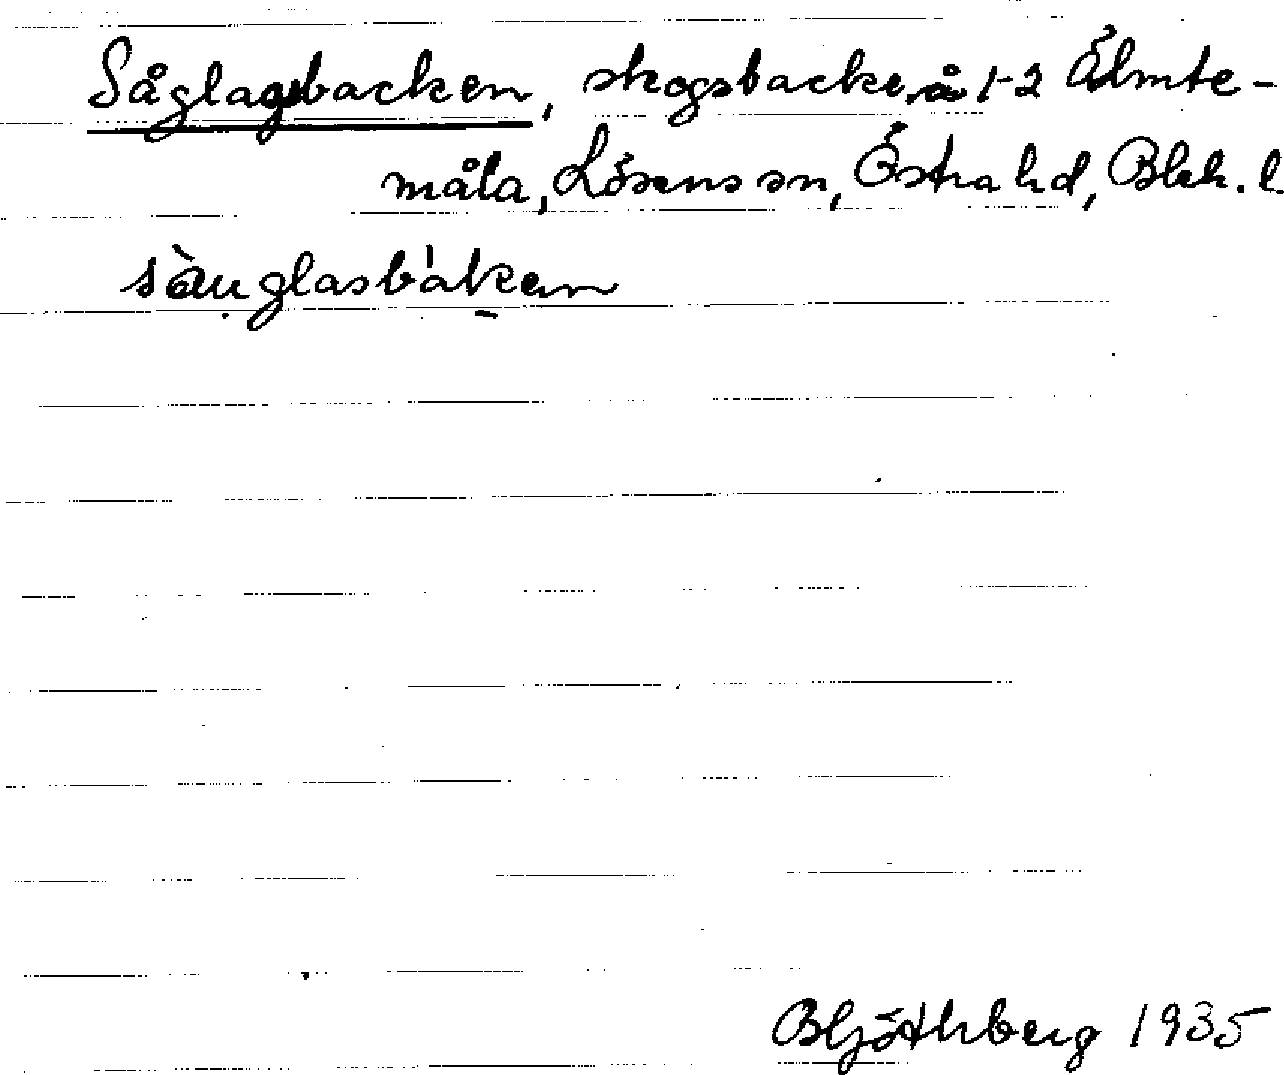 Såglagsbacken, skogsbacke, å 1-2 Älmte-
måla, Lösens sn, Östra hd, Blek. l.
sàuglasbáken
1935